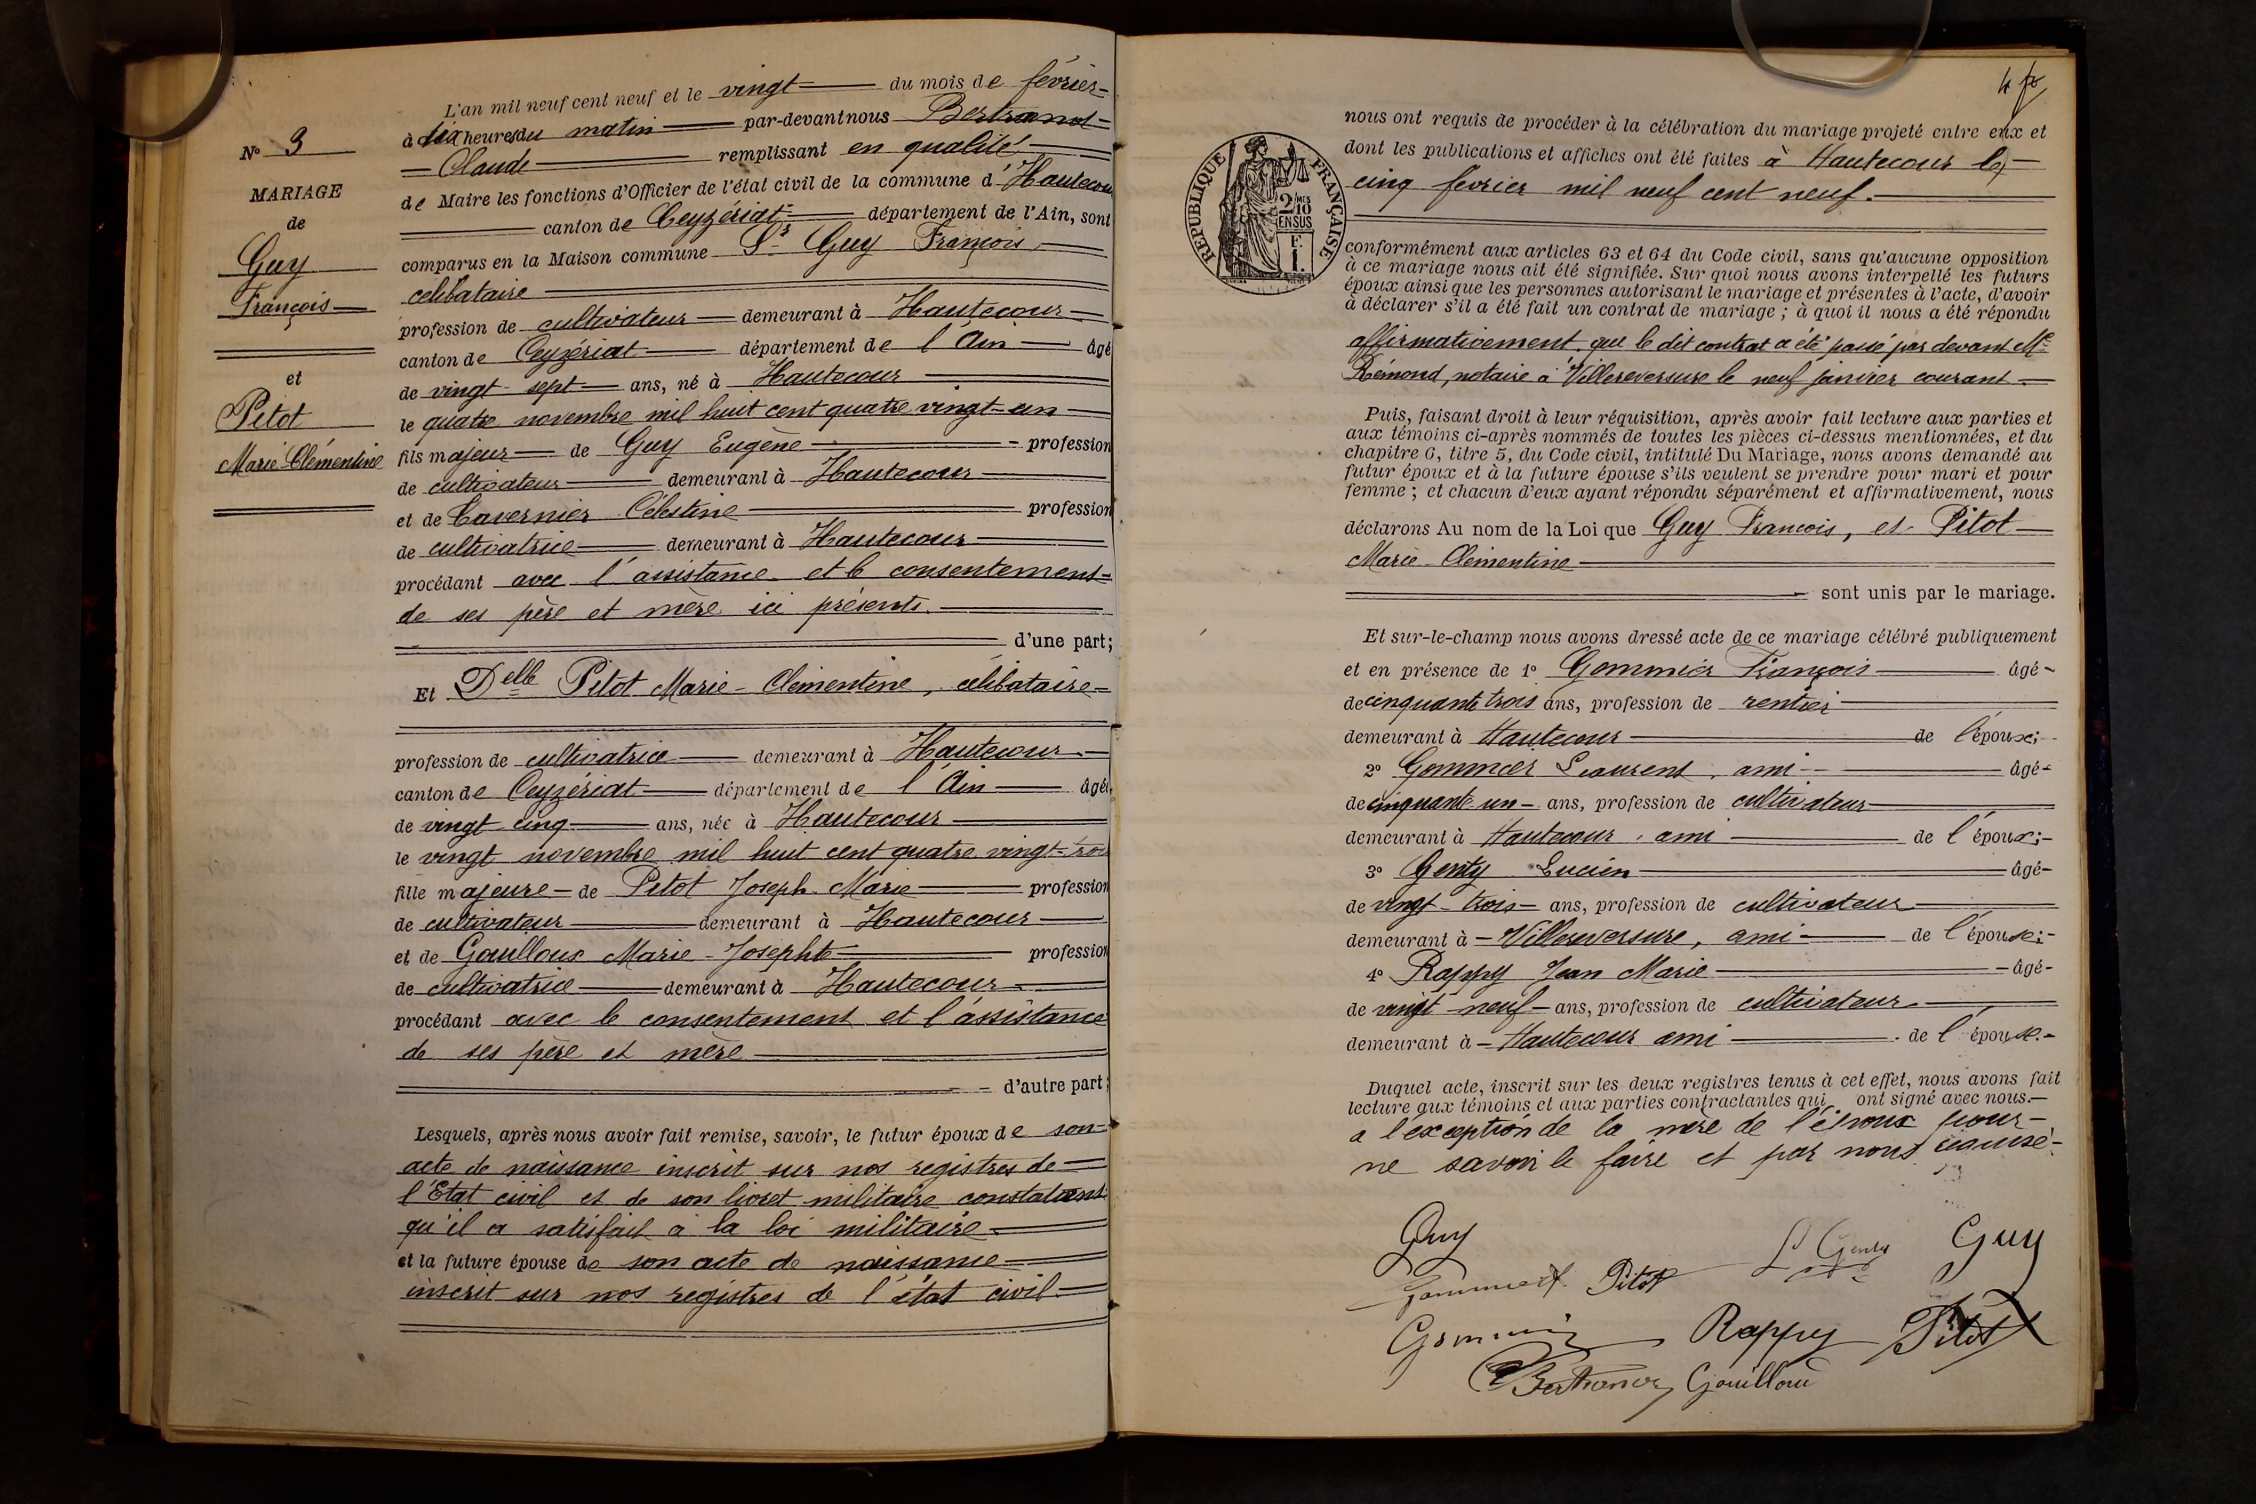 L'an mil neuf cent neuf et le vingt du mois de février
à dix heures du matin par-devant nous Bertrand
Claude remplissant en qualité
de Maire les fonctions d'Officier de l'état civil de la commune d'Hautecour
canton de Ceyzériat département de l'Ain, sont
comparus en la Maison commune Sr Guy François
célibataire
profession de cultivateur demeurant à Hautecour
canton de Ceyzériat département de l'Ain âgé
de vingt-sept ans, né à Hautecour
le quatre novembre mil huit cent quatre vingt-un
fils majeur de Guy Eugène profession
de cultivateur demeurant à Hautecour
et de Tavernier Célestine profession
de cultivatrice demeurant à Hautecour
procédant avec l'assistance et le consentement
de ses père et mère ici présents.
d'une part;
Et Delle Pitot Marie-Clémentine, célibataire
profession de cultivatrice demeurant à Hautecour
canton de Ceyzériat département de l'Ain âgée
de vingt cinq ans, née à Hautecour
le vingt novembre mil huit cent quatre vingt-trois
fille majeure de Pitot Joseph Marie profession
de cultivateur demeurant à Hautecour
et de Gouilloux Marie-Josephte profession
de cultivatrice demeurant à Hautecour
procédant avec le consentement et l'assistance
de ses père et mère
d'autre part;
Lesquels, après nous avoir fait remise, savoir, le futur époux de son
acte de naissance inscrit sur nos registres de
l'Etat civil et de son livret militaire constatant
qu'il a satisfait à la loi militaire
et la future épouse de son acte de naissance
inscrit sur nos registres de l'état civil
No 3
MARIAGE
de
Guy
François
et
Pitot
Marie Clémentine
4
nous ont requis de procéder à la célébration du mariage projeté entre eux et
dont les publications et affiches ont été faites à Hautecour le
cinq février mil neuf cent neuf.
REPUBLIQUE FRANÇAISE
2/10
MES
EN SUS
conformément aux articles 63 et 64 du Code civil, sans qu'aucune opposition
à ce mariage nous ait été signifiée. Sur quoi nous avons interpellé les futurs
époux ainsi que les personnes autorisant le mariage et présentes à l'acte, d'avoir
à déclarer s'il a été fait un contrat de mariage; à quoi il nous a été répondu
affirmativement que le dit contrat a été passé par devant Me
Rémond, notaire à Villereversure le neuf janvier courant
Puis, faisant droit à leur réquisition, après avoir fait lecture aux parties et
aux témoins ci-après nommés de toutes les pièces ci-dessus mentionnées, et du
chapitre 6, titre 5, du Code civil, intitulé Du Mariage, nous avons demandé au
futur époux et à la future épouse s'ils veulent se prendre pour mari et pour
femme; et chacun d'eux ayant répondu séparément et affirmativement, nous
déclarons Au nom de la Loi que Guy François, et Pitot
Marie Clémentine
sont unis par le mariage.
Et sur-le-champ nous avons dressé acte de ce mariage célébré publiquement
et en présence de 1o Gommier François âgé
de cinquante trois ans, profession de rentier
demeurant à Hautecour de l'époux;
2o Gommier Laurent, ami âgé
de cinquante un ans, profession de cultivateur
demeurant à Hautecour, ami de l'époux;
3o Genty Lucien âgé
de vingt-trois ans, profession de cultivateur
demeurant à Villereversure, ami de l'épouse;
4o Rappy Jean Marie âgé
de vingt neuf ans, profession de cultivateur
demeurant à Hautecour ami de l'épouse.
Duquel acte, inscrit sur les deux registres tenus à cet effet, nous avons fait
lecture aux témoins et aux parties contractantes qui ont signé avec nous.
a l'exception de la mère de l'époux pour
ne savoir le faire et par nous requise.
Guy L Genty Guy
Gommier f. Pitot
Gommier Rappy Pitot
Bertrand Gouilloux